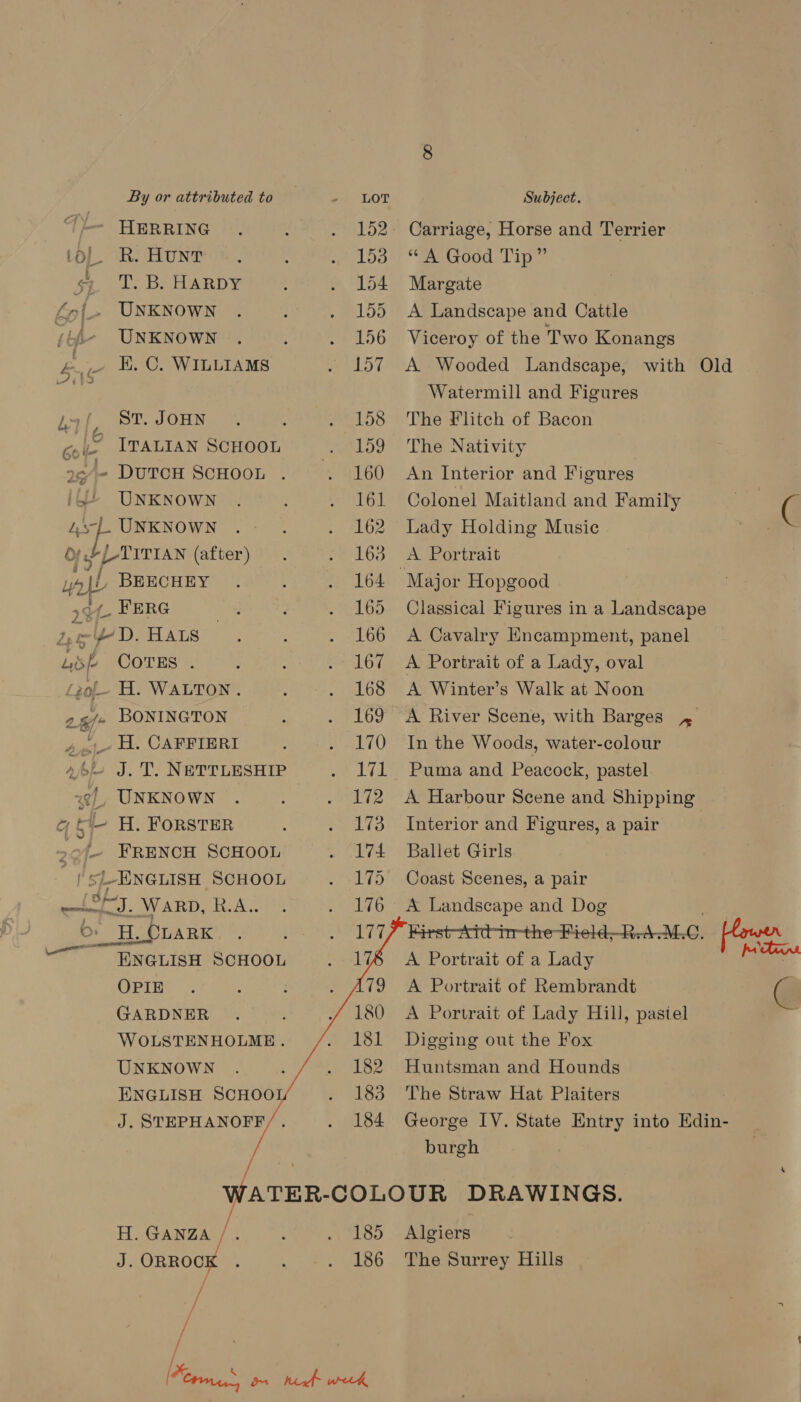 8
By or attributed to - LOT Subject.
HERRING . . . 152 Carriage, Horse and Terrier
R. HUNT . . . 153 “A Good Tip”
T. B. HARDY . . 154 Margate
UNKNOWN . . . 155 A Landscape and Cattle
UNKNOWN . . . 156 Viceroy of the Two Konangs
E. C. WILLIAMS . 157 A Wooded Landscape, with Old
Watermill and Figures
ST. JOHN . . . 158 The Flitch of Bacon
ITALIAN SCHOOL . 159 The Nativity
DUTCH SCHOOL . . 160 An Interior and Figures
UNKNOWN . . . 161 Colonel Maitland and Family
UNKNOWN . . . 162 Lady Holding Music
TITIAN (after) . . 163 A Portrait
BEECHEY . . . 164 Major Hopgood
FERG . . . 165 Classical Figures in a Landscape
D. HALS . . . 166 A Cavalry Encampment, panel
COTES . . . 167 A Portrait of a Lady, oval
H. WALTON . . . 168 A Winter’s Walk at Noon
BONINGTON . . 169 A River Scene, with Barges
H. CAFFIERI . . 170 In the Woods, water-colour
J. T. NETTLESHIP . 171 Puma and Peacock, pastel
UNKNOWN . . . 172 A Harbour Scene and Shipping
H. FORSTER . . 173 Interior and Figures, a pair
FRENCH SCHOOL . 174 Ballet Girls
ENGLISH SCHOOL . 175 Coast Scenes, a pair
J. WARD, R.A. . . 176 A Landscape and Dog
H. CLARK . . . 177 First Aid in the Field, R.A.M.C. flower picture
ENGLISH SCHOOL . 178 A Portrait of a Lady
OPIE . . . 179 A Portrait of Rembrandt
GARDNER . . 180 A Portrait of Lady Hill, pastel
WOLSTENHOLME . . 181 Digging out the Fox
UNKNOWN . . . 182 Huntsman and Hounds
ENGLISH SCHOOL . 183 The Straw Hat Plaiters
J. STEPHANOFF . . 184 George IV. State Entry into Edin-
burgh
WATER-COLOUR DRAWINGS.
H. GANZA . . . 185 Algiers
J. ORROCK . . . 186 The Surrey Hills
Coming on next week